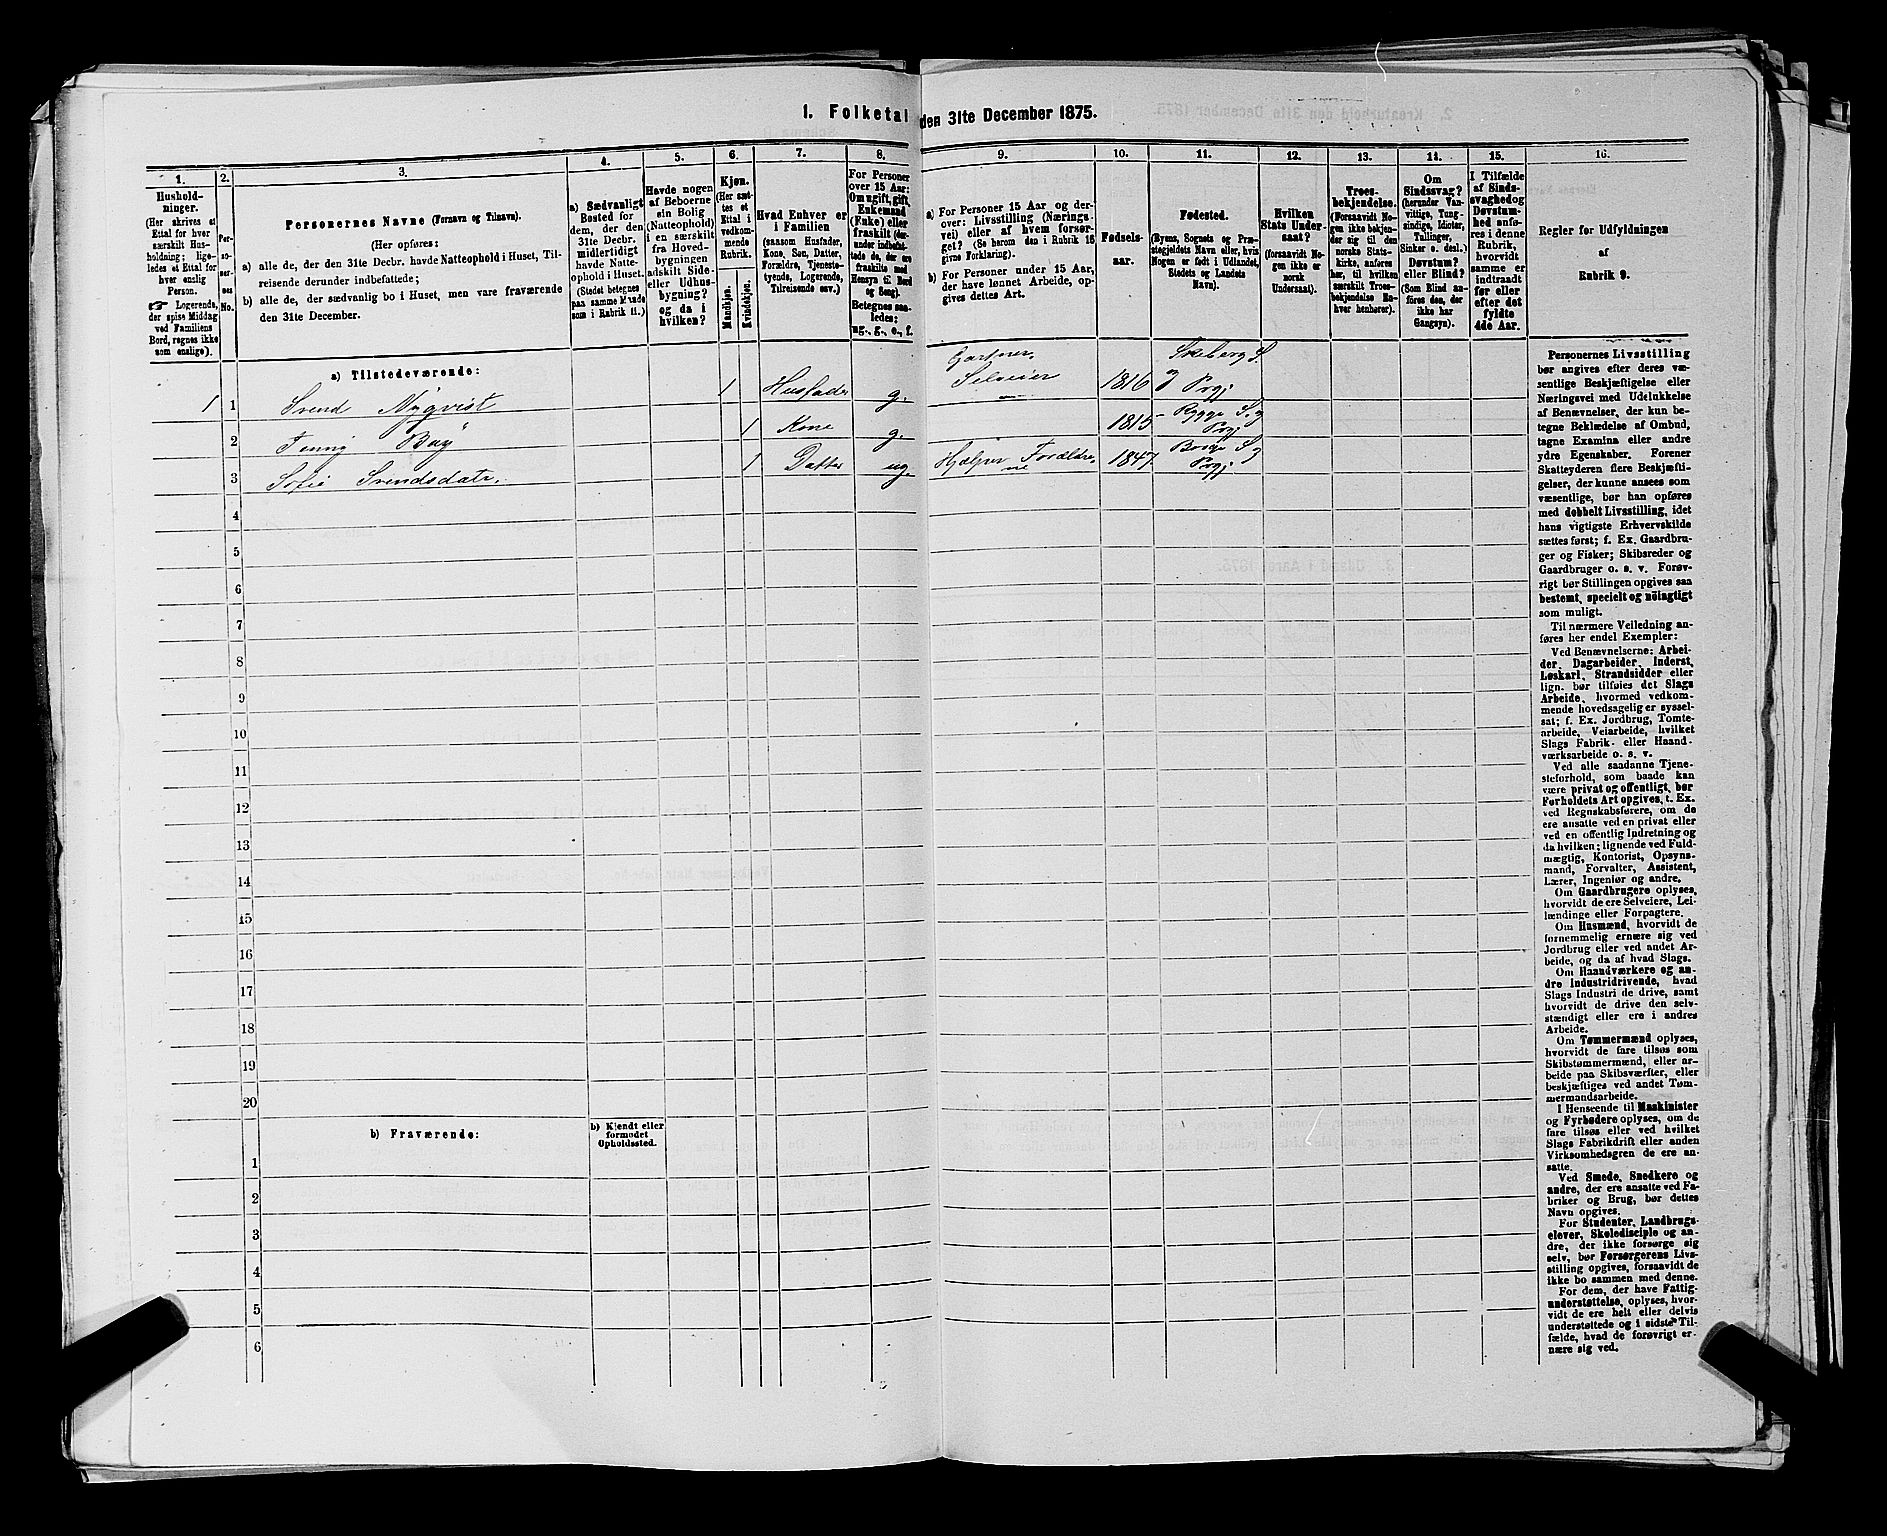 1. Folketal den 31te December 1875.
1. 2. 3. 4. 5. 6. 7. 8. 9. 10. 11. 12. 13. 14. 15. 16.
Hushold-
ninger.
(Her skrives et
Ettal for hver
særskilt Hus-
holdning; lige-
ledes et Ettal for
hver enslig
Person.
☞ Logerende,
der spise Middag
ved Familiens
Bord, regnes ikke
som enslige).
Per-
soner-
nes
No.
Personernes Navne (Fornavn og Tilnavn).
(Her opføres:
a) alle de, der den 31te Decbr. havde Natteophold i Huset, Til-
reisende derunder indbefattede;
b) alle de, der sædvanlig bo i Huset, men vare fraværende
den 31te December.
a) Sædvanligt
Bosted for
dem, der den
31te Decbr.
midlertidigt
havde Natte-
ophold i Huset.
(Stedet betegnes
paa samme Maade
som i Rubrik 11.)
Havde nogen
af Beboerne
sin Bolig
(Natteophold)
i en særskilt
fra Hoved-
bygningen
adskilt Side-
eller Udhus-
bygning?
og da i
hvilken?
Kjøn.
(Her sæt-
tes et
Ettal i
vedkom-
mende
Rubrik.
Mandkjøn.
Kvindekjøn.
Hvad Enhver er
i Familien
(saasom Husfader,
Kone, Søn, Datter,
Forældre, Tjeneste-
tyende, Logerende,
Tilreisende osv.)
For Personer
over 15 Aar:
Om ugift, gift,
Enkemand
(Enke) eller
fraskilt (der-
under indbefat-
tede de, der ere
fraskilte med
Hensyn til Bord
og Seng).
Betegnes saa-
ledes:
ug., g., e., f.
a) For Personer 15 Aar og der-
over: Livsstilling (Nærings-
vei) eller af hvem forsør-
get? (Se herom den i Rubrik 16
givne Forklaring).
b) For Personer under 15 Aar,
der have lønnet Arbeide, op-
gives dettes Art.
Fødsels-
aar.
Fødested.
(Byens, Sognets og Præ-
stegjeldets Navn eller, hvis
Nogen er født i Udlandet,
Stedets og Landets
Navn).
Hvilken
Stats Under-
saat?
(forsaavidt No-
gen ikke er
norsk
Undersaat).
Troes-
bekjendelse.
(Forsaavidt No-
gen ikke bekjen-
der sig til den
norske Stats-
kirke, anføres
her, til hvilken
særskilt Troes-
bekjendelse En-
hver henhører).
Om
Sindssvag?
(herunder Van-
vittige, Tung-
sindige, Idioter,
Tullinger,
Sinker o. desl.)
Døvstum?
eller Blind?
(Som Blind an-
føres den, der
ikke har
Gangsyn).
I Tilfælde
af Sinds-
svaghed og
Døvstum-
hed anfø-
res i denne
Rubrik,
hvorvidt
samme er
indtraadt
før eller
efter det
fyldte
4de Aar.
Regler for Udfyldningen
af
Rubrik 9.
a) Tilstedeværende:
1 1 Svend Nyqvist 1 Husfader g. Gartner, Selveier 1816 Skeberg S. og Prgj
2 Jenny Bay 1 Kone g. 1815 Rygge S. og Prgj.
3 Sofie Svendsdatr. 1 Datter ug. Hjelper Forældrene 1847 Borge S. og Prgj.
4
5
6
7
8
9
10
11
12
13
14
15
16
17
18
19
20
b) Fraværende:
b) Kjendt eller
formodet
Opholdssted.
1
2
3
4
5
6
Personernes Livsstilling
bør angives efter deres væ-
sentlige Beskjæftigelse eller
Næringsvei med Udelukkelse
af Benævnelser, der kun be-
tegne Beklædelse af Ombud,
tagne Examina eller andre
ydre Egenskaber. Forener
Skatteyderen flere Beskjæfti-
gelser, der kunne ansees som
væsentlige, bør han opføres
med dobbelt Livsstilling, idet
hans vigtigste Erhvervskilde
sættes først; f. Ex. Gaardbru-
ger og Fisker; Skibsreder og
Gaardbruger o. s. v. Forøv-
rigt bør Stillingen opgives saa
bestemt, specielt og nöiagtigt
som muligt.
Til nærmere Veiledning an-
føres her endel Exempler:
Ved Benævnelserne: Arbei-
der, Dagarbeider, Inderst,
Løskarl, Strandsidder eller
lign. bør tilføies det Slags
Arbeide, hvormed vedkom-
mende hovedsagelig er syssel-
sat; f. Ex. Jordbrug, Tomte-
arbeide, Veiarbeide, hvilket
Slags Fabrik- eller Haand-
værksarbeide o. s. v.
Ved alle saadanne Tjene-
steforhold, som baade kan
være privat og offentligt, bør
Forholdets Art opgives, t. Ex.
ved Regnskabsførere, om de
ere ansatte ved en privat eller
ved en offentlig Indretning og
da hvilken; lignende ved Fuld-
mægtig, Kontorist, Opsyns-
mand, Forvalter, Assistent,
Lærer, Ingeniør og andre.
Om Gaardbrugere oplyses,
hvorvidt de ere Selveiere, Lei-
lændinge eller Forpagtere.
Om Husmænd, hvorvidt de
fornemmelig ernære sig ved
Jordbrug eller ved andet Ar-
beide, og da af hvad Slags.
Om Haandværkere og an-
dre Industridrivende, hvad
Slags Industri de drive, samt
hvorvidt de drive den selv-
stændigt eller ere i andres
Arbeide.
Om Tømmermænd oplyses,
hvorvidt de fare tilsøs som
Skibstømmermænd, eller ar-
beide paa Skibsværfter, eller
beskjæftiges ved andet Tøm-
mermandsarbeide.
I Henseende til Maskinister
og Fyrbødere oplyses, om de
fare tilsøs eller ved hvilket
Slags Fabrikdrift eller anden
Virksomhedsgren de ere an-
satte.
Ved Smede, Snedkere og
andre, der ere ansatte ved Fa-
briker og Brug, bør dettes
Navn opgives.
For Studenter, Landbrugs-
elever, Skoledisciple og an-
dre, der ikke forsørge sig
selv, bør Forsørgerens Livs-
stilling opgives, forsaavidt de
ikke bo sammen med denne.
For dem, der have Fattig-
understøttelse, oplyses, hvor-
vidt de ere helt eller delvis
understøttede og i sidste Til-
fælde, hvad de forøvrigt er-
nære sig ved.